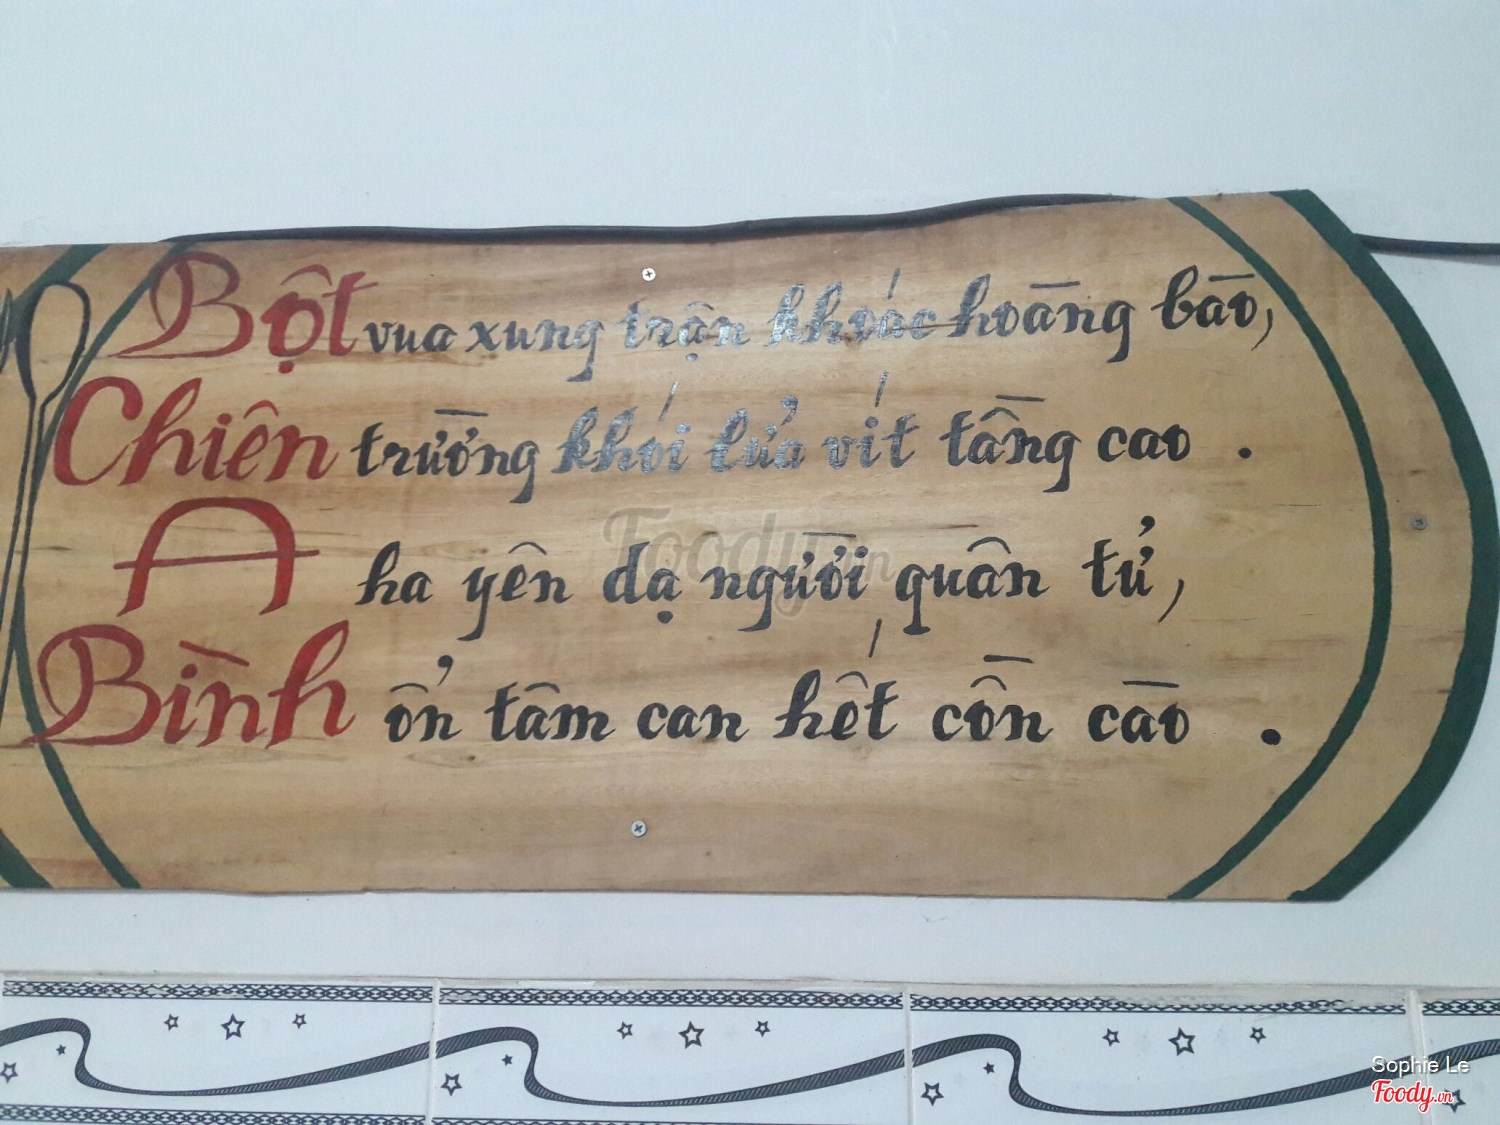 Bột vua xung trận khoác hoàng bào,
Chiên trường khói lửa vít tầng cao.
A ha yên dạ người quân tử,
Bình ổn tâm can hết cồn cào.
Foody.vn
Sophie Le
Foody.vn